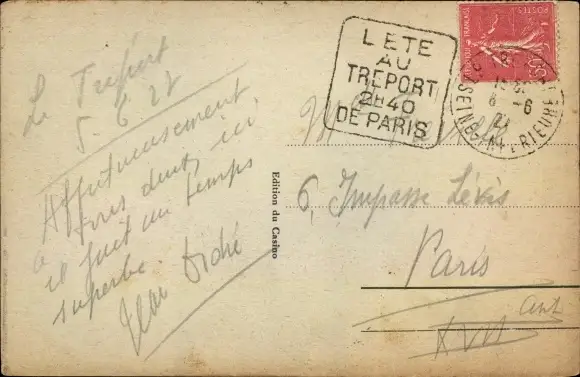 Le Tréport
5.6.27
Affectueusement
à tous deux, ici,
il fait un temps
superbe.
L'ETE
AU
TREPORT
2H40
DE PARIS
POSTES
SEINE INFERIEURE
6 -6
27
Edition du Casino
6, Impasse Lévis
Paris
XVII